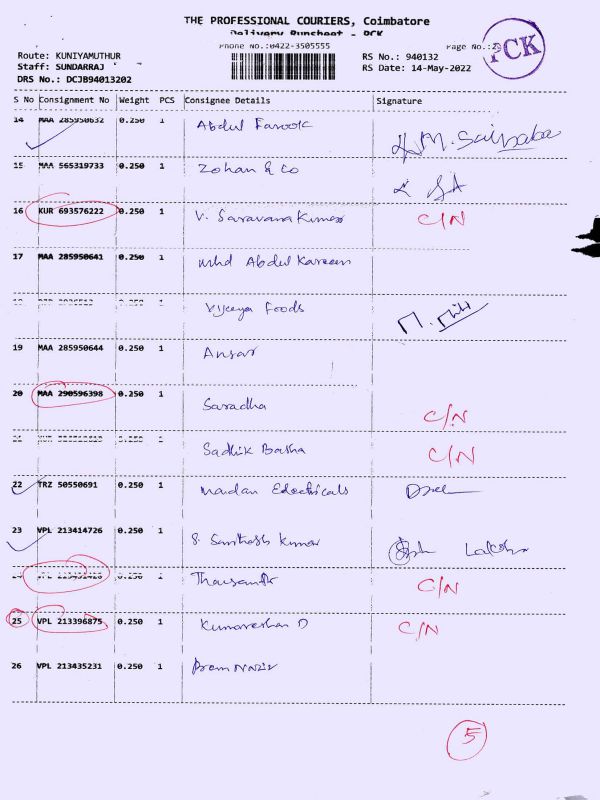 THE PROFESSIONAL COURIERS, Coimbatore
Delivery Runsheet - PCK
Phone No.:0422-3505555
Page No.:2
PCK
Route: KUNIYAMUTHUR
RS No.: 940132
Staff: SUNDARRAJ
RS Date: 14-May-2022
DRS No.: DCJB94013202
S No Consignment No Weight PCS Consignee Details Signature
14 MAA 285950632 0.250 1 Abdul Farook
15 MAA 565319733 0.250 1 Zohan & Co
16 KUR 693576222 0.250 1 V. Saravana Kumar C/N
17 MAA 285950641 0.250 1 Mhd Abdul Kareem
Vijeeya Foods
19 MAA 285950644 0.250 1 Ansar
20 MAA 290596398 0.250 1 Saradha C/N
Sadhik Basha C/N
22 TRZ 50550691 0.250 1 Maidan Edectricals
23 VPL 213414726 0.250 1 S. Santhosh Kumar
0.250 1 C/N
25 VPL 213396875 0.250 1 Kumareshan D C/N
26 VPL 213435231 0.250 1 Prem Nazir
5